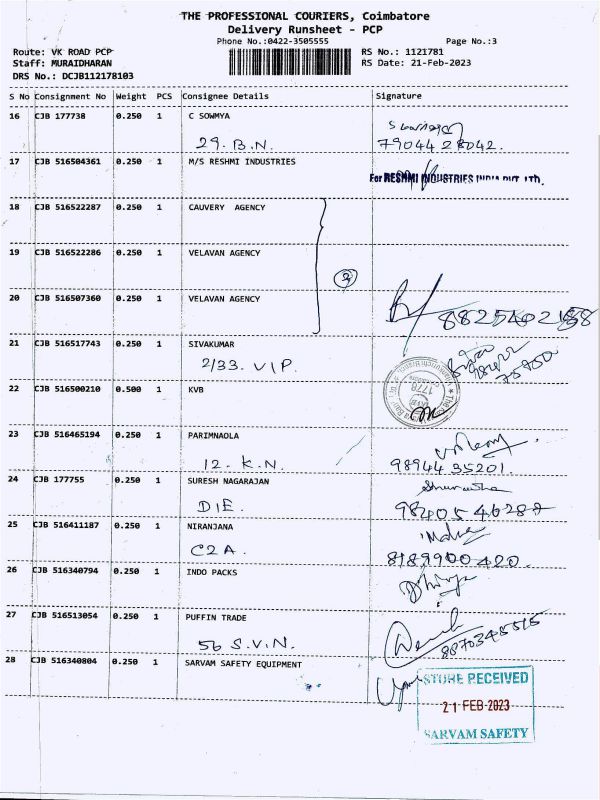 THE PROFESSIONAL COURIERS, Coimbatore
Delivery Runsheet - PCP
Phone No.:0422-3505555 Page No.:3
Route: VK ROAD PCP RS No.: 1121781
Staff: MURAIDHARAN RS Date: 21-Feb-2023
DRS No.: DCJB112178103
S No Consignment No Weight PCS Consignee Details Signature
16 CJB 177738 0.250 1 C SOWMYA
29. B.N. 79044 28042.
17 CJB 516504361 0.250 1 M/S RESHMI INDUSTRIES
For RESHMI INDUSTRIES INDIA PVT. LTD.
18 CJB 516522287 0.250 1 CAUVERY AGENCY
19 CJB 516522286 0.250 1 VELAVAN AGENCY
3
20 CJB 516507360 0.250 1 VELAVAN AGENCY
21 CJB 516517743 0.250 1 SIVAKUMAR
2/33. V.I.P.
22 CJB 516500210 0.500 1 KVB
1778
23 CJB 516465194 0.250 1 PARIMNAOLA
12. K.N. 98944 35201.
24 CJB 177755 0.250 1 SURESH NAGARAJAN
D.I.E.
25 CJB 516411187 0.250 1 NIRANJANA
C2A. 8189900420.
26 CJB 516340794 0.250 1 INDO PACKS
27 CJB 516513054 0.250 1 PUFFIN TRADE
56 S.V.N. 8870345515
28 CJB 516340804 0.250 1 SARVAM SAFETY EQUIPMENT
STORE RECEIVED
21 FEB 2023
SARVAM SAFETY